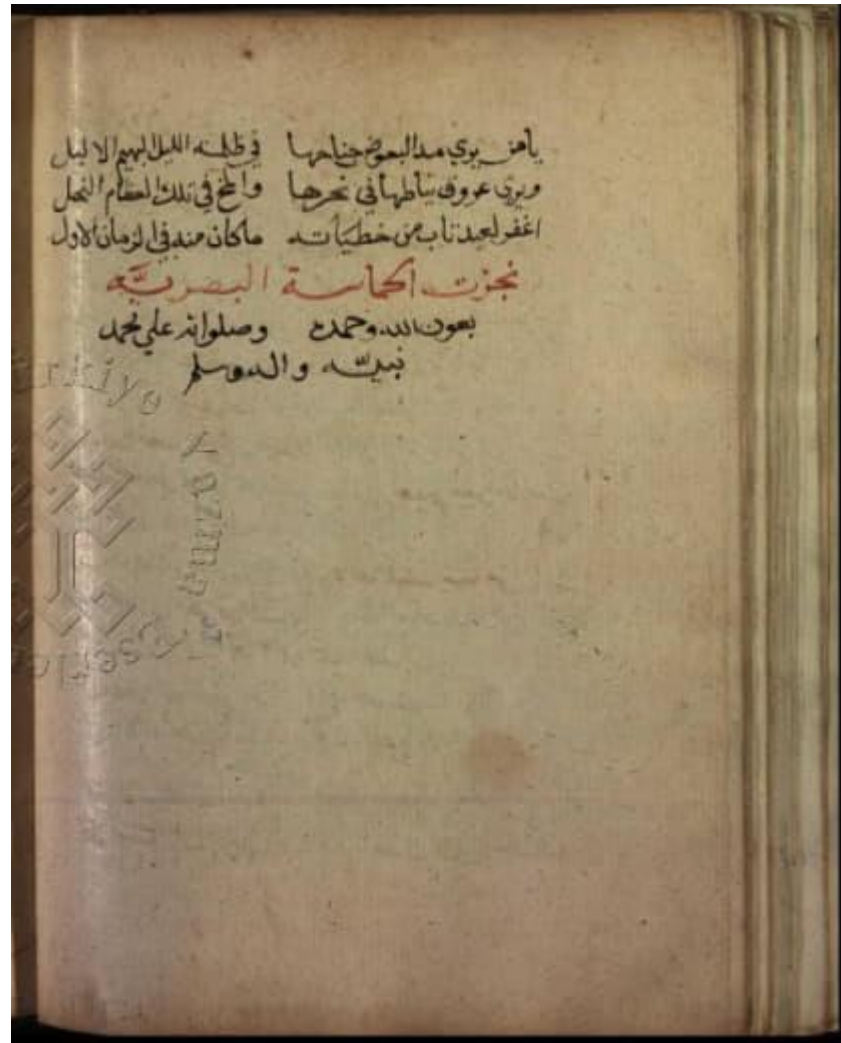 يا من يرى مد البعوض جناحها في ظلمة الليل البهيم الاليل
ويرى عروق نياطها في نحرها والمخ في تلك العظام النحل
اغفر لعبد تاب من خطياته ما كان منه في الزمان الاول
نجزت الحماسة البصريَّة
بعون الله وحمده وصلواته على محمد
نبيّه واله وسلم
Türkiye Yazma Eserler